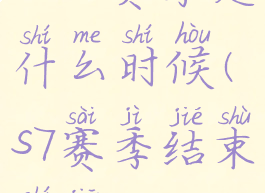 shí me shí hòu
什么时候(
sài jì jié shù
S7赛季结束